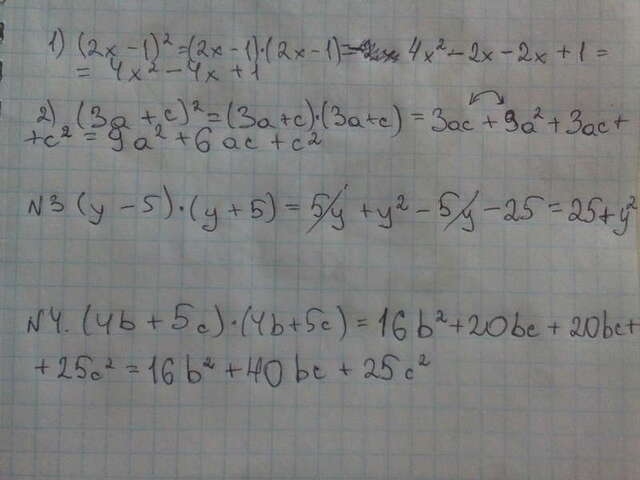 1) (2x-1)²=(2x-1)·(2x-1)= 4x²-2x-2x+1=
= 4x²-4x+1
2) (3a+c)²=(3a+c)·(3a+c)=3ac+9a²+3ac+
+c²=9a²+6ac+c²
№3 (y-5)·(y+5)=5y+y²-5y-25=25+y²
№4. (4b+5c)·(4b+5c)=16b²+20bc+20bc+
+25c²=16b²+40bc+25c²